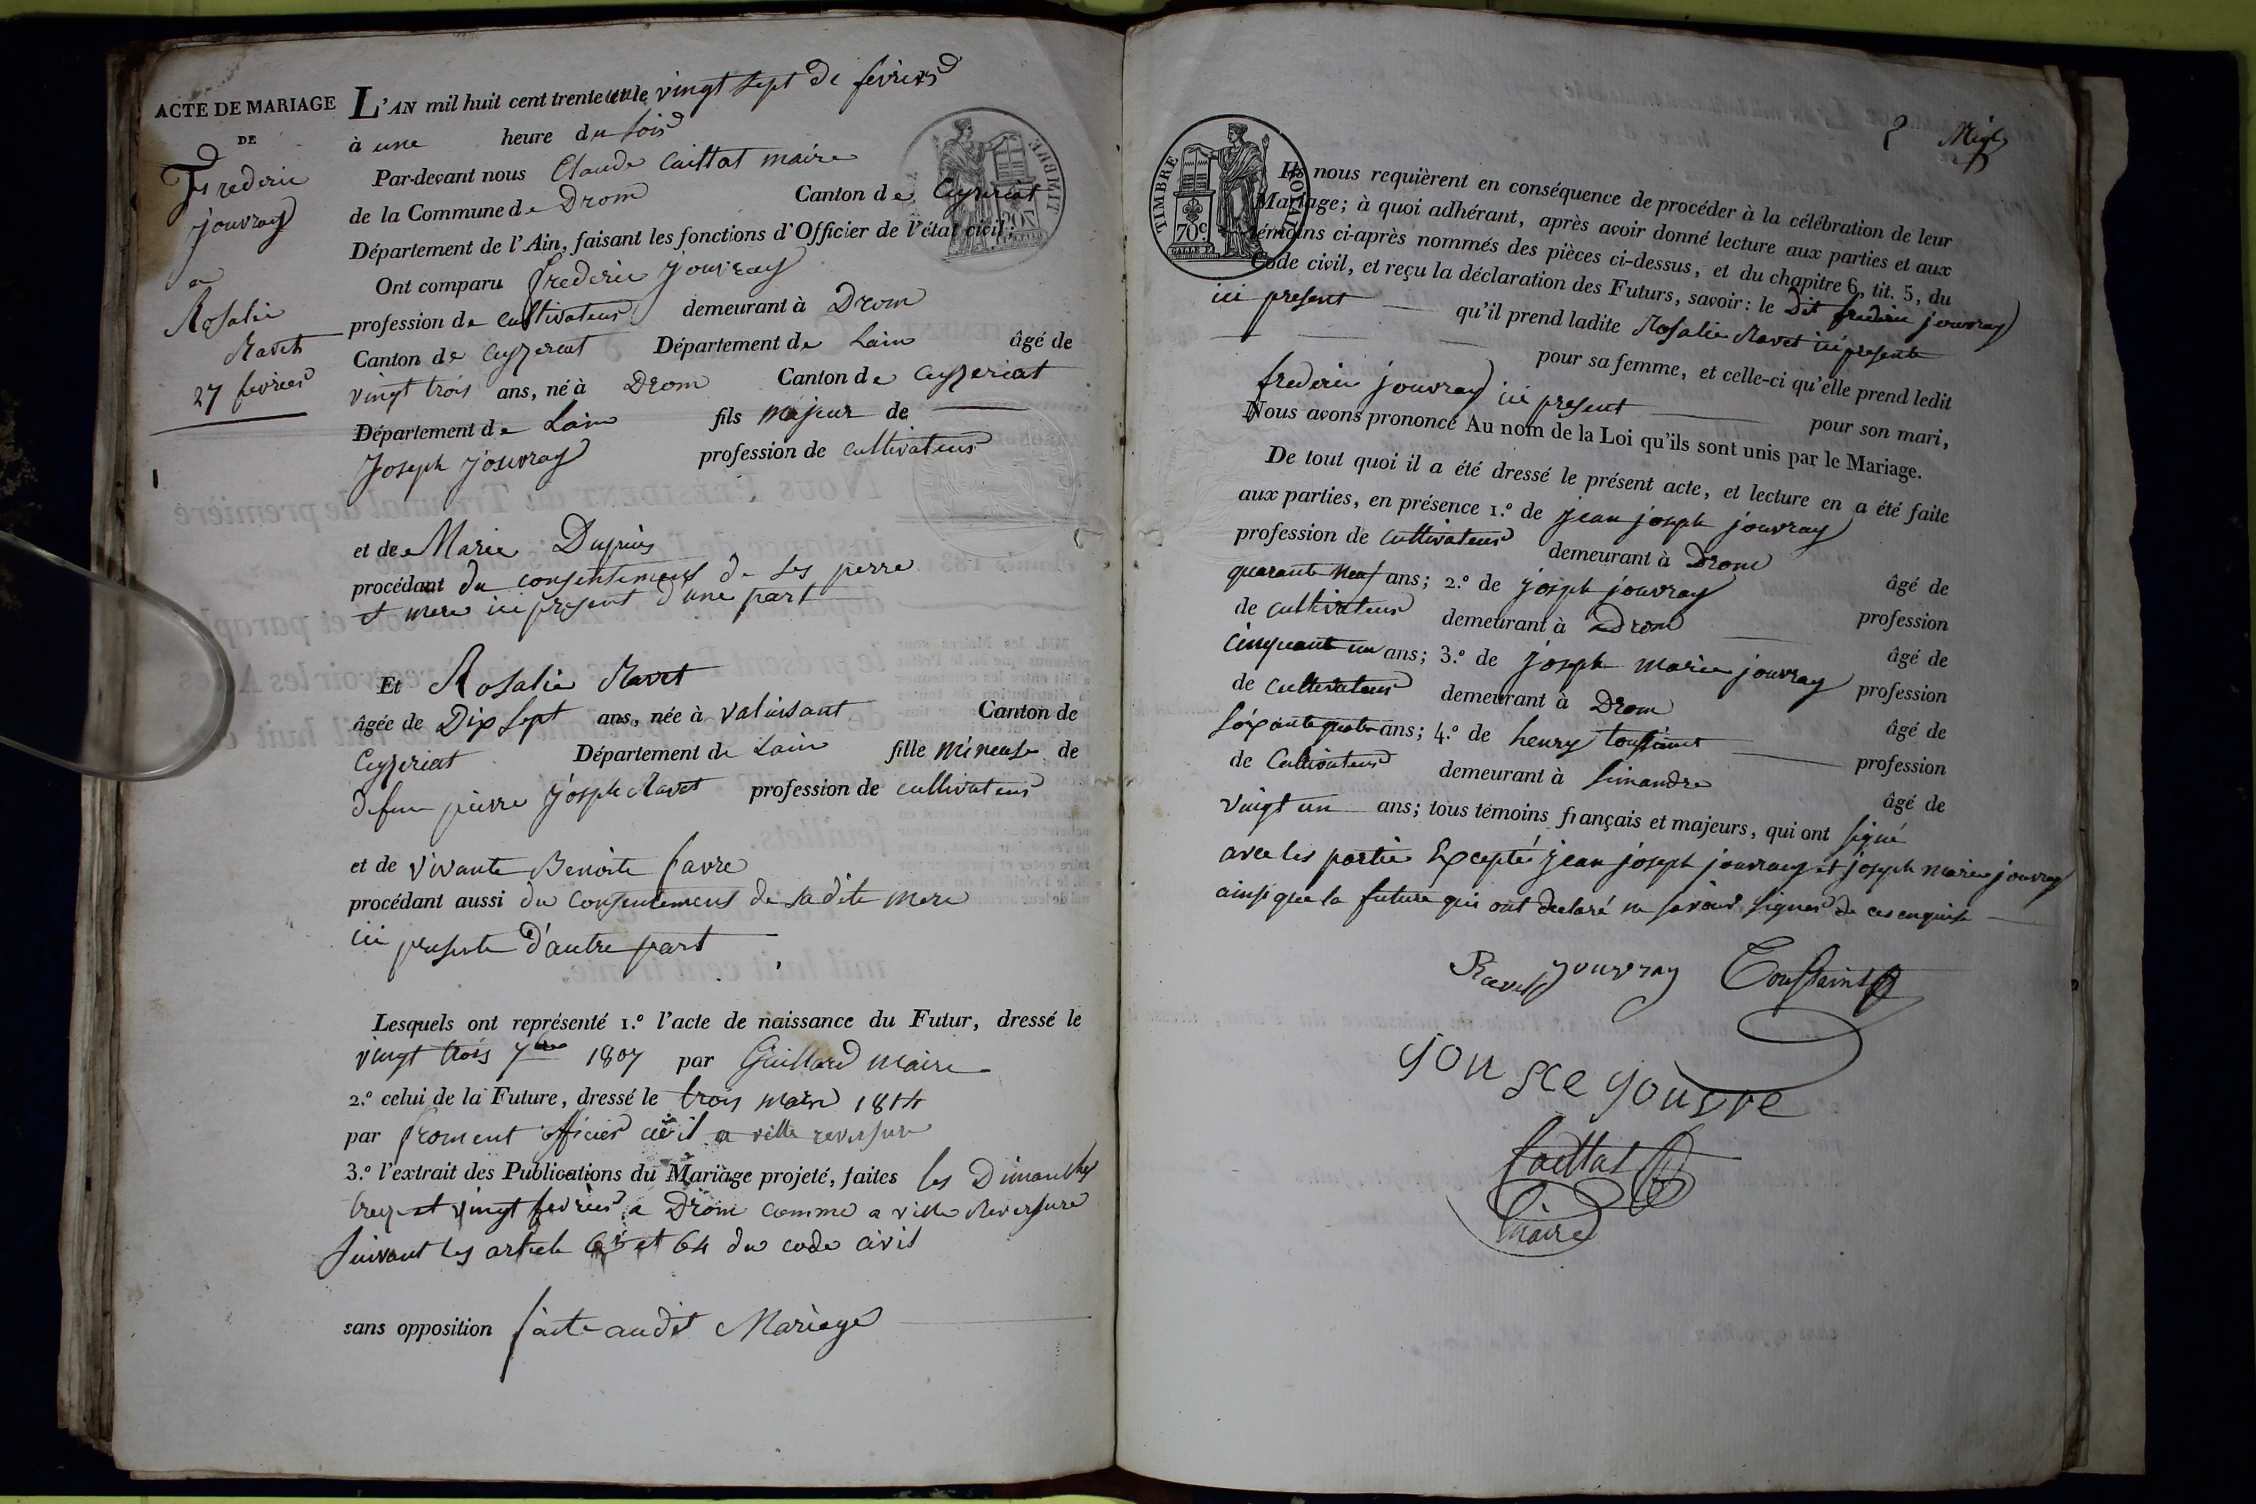 ACTE DE MARIAGE
DE
Frederic
jouvray
a
Rosalie
Ravet
27 fevrier
L'AN mil huit cent trente et un le vingt sept de fevrier
à une heure du soir
Par-devant nous Claude Caillat maire
de la Commune de Drom Canton de Ceyzeriat
Département de l'Ain, faisant les fonctions d'Officier de l'état civil;
Ont comparu frederic jouvray
profession de cultivateur demeurant à Drom
Canton de Ceyzeriat Département de Lain âgé de
vingt trois ans, né à Drom Canton de Ceyzeriat
Département de Lain fils majeur de
Joseph Jouvray profession de cultivateur
et de Marie Dupuis
procédant du consentement de ses perre
et mere ici present d'une part
Et Rosalie Ravet
âgée de Dix sept ans, née à valuisant Canton de
Ceyzeriat Département de Lain fille mineuse de
defun pierre joseph Ravet profession de cultivateur
et de vivante Benoite favre
procédant aussi du consentement de sa dite mere
ici presente d'autre part
Lesquels ont représenté 1.º l'acte de naissance du Futur, dressé le
vingt trois 7bre 1807 par Guillard maire
2.º celui de la Future, dressé le trois mars 1814
par froment officier civil a ville reversure
3.º l'extrait des Publications du Mariage projeté, faites les Dimanches
treze et vingt fevrier a Drom comme a ville Reversure
suivant les article 63 et 64 du code civil
sans opposition faite audit Mariage
TIMBRE ROYAL
70c
Ils nous requièrent en conséquence de procéder à la célébration de leur
Mariage; à quoi adhérant, après avoir donné lecture aux parties et aux
témoins ci-après nommés des pièces ci-dessus, et du chapitre 6, tit. 5, du
Code civil, et reçu la déclaration des Futurs, savoir: le dit frederic jouvray
ici present qu'il prend ladite Rosalie Ravet ici presente
pour sa femme, et celle-ci qu'elle prend ledit
frederic jouvray ici present pour son mari,
Nous avons prononcé Au nom de la Loi qu'ils sont unis par le Mariage.
De tout quoi il a été dressé le présent acte, et lecture en a été faite
aux parties, en présence 1.º de jean joseph jouvray
profession de cultivateur demeurant à Drom âgé de
quarante neuf ans; 2.º de joseph jouvray profession
de cultivateur demeurant à Drom âgé de
cinquante un ans; 3.º de joseph marie jouvray profession
de cultivateur demeurant à Drom âgé de
soixante quatre ans; 4.º de henry toussaint profession
de Cultivateur demeurant à simandre âgé de
vingt un ans; tous témoins français et majeurs, qui ont signé
avec les partie Excepté jean joseph jouvray et joseph marie jouvray
ainsi que la future qui ont declaré ne savoir signer de ces enquise
Ravet jouvray Toussaint
jousce jousvre
Caillat
maire